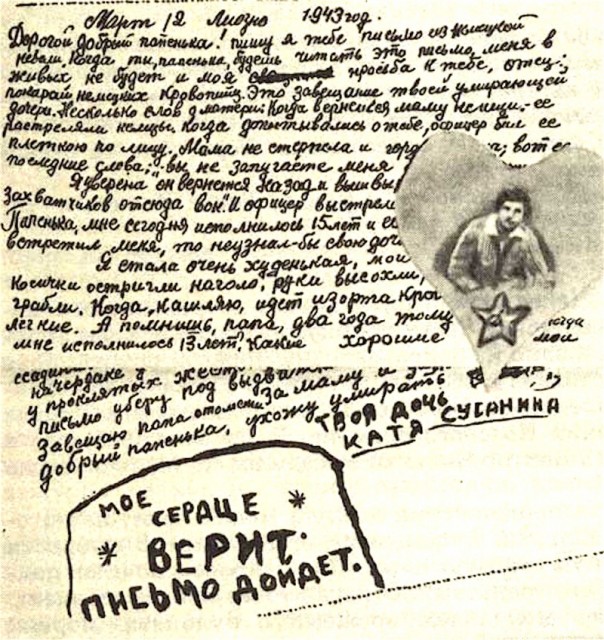 Март, 12 Лиозно 1943 год.
Дорогой, добрый папенька! пишу я тебе письмо из немецкой
неволи. Когда ты, папенька, будешь читать это письмо, меня в
живых не будет и моя просьба к тебе, отец:
покарай немецких кровопийц. Это завещание твоей умирающей
дочери. Несколько слов о матери. Когда вернешься маму не ищи. Ее
расстреляли немцы. Когда допытывались о тебе, офицер бил ее
плеткою по лицу. Мама не стерпела и гор вот ее
последние слова: „вы не запугаете меня
Я уверена он вернется назад и вышвы
захватчиков отсюда вон". И офицер выстрели
Папенька, мне сегодня исполнилось 15 лет и ес
встретил меня, то не узнал-бы свою доч
Я стала очень худенькая, мои
косички остригли наголо, руки высохли,
грабли. Когда кашляю, идет изо рта кро
легкие. А помнишь, папа, два года тому когда
мне исполнилось 13 лет. Какие хорошие мои
чердаке
у проклятых
письмо уберу под
Завещаю папа отомсти за маму и
добрый папенька, ухожу умирать
ТВОЯ ДОЧЬ
КАТЯ СУСАНИНА
МОЕ
СЕРДЦЕ
ВЕРИТ.
ПИСЬМО ДОЙДЕТ.